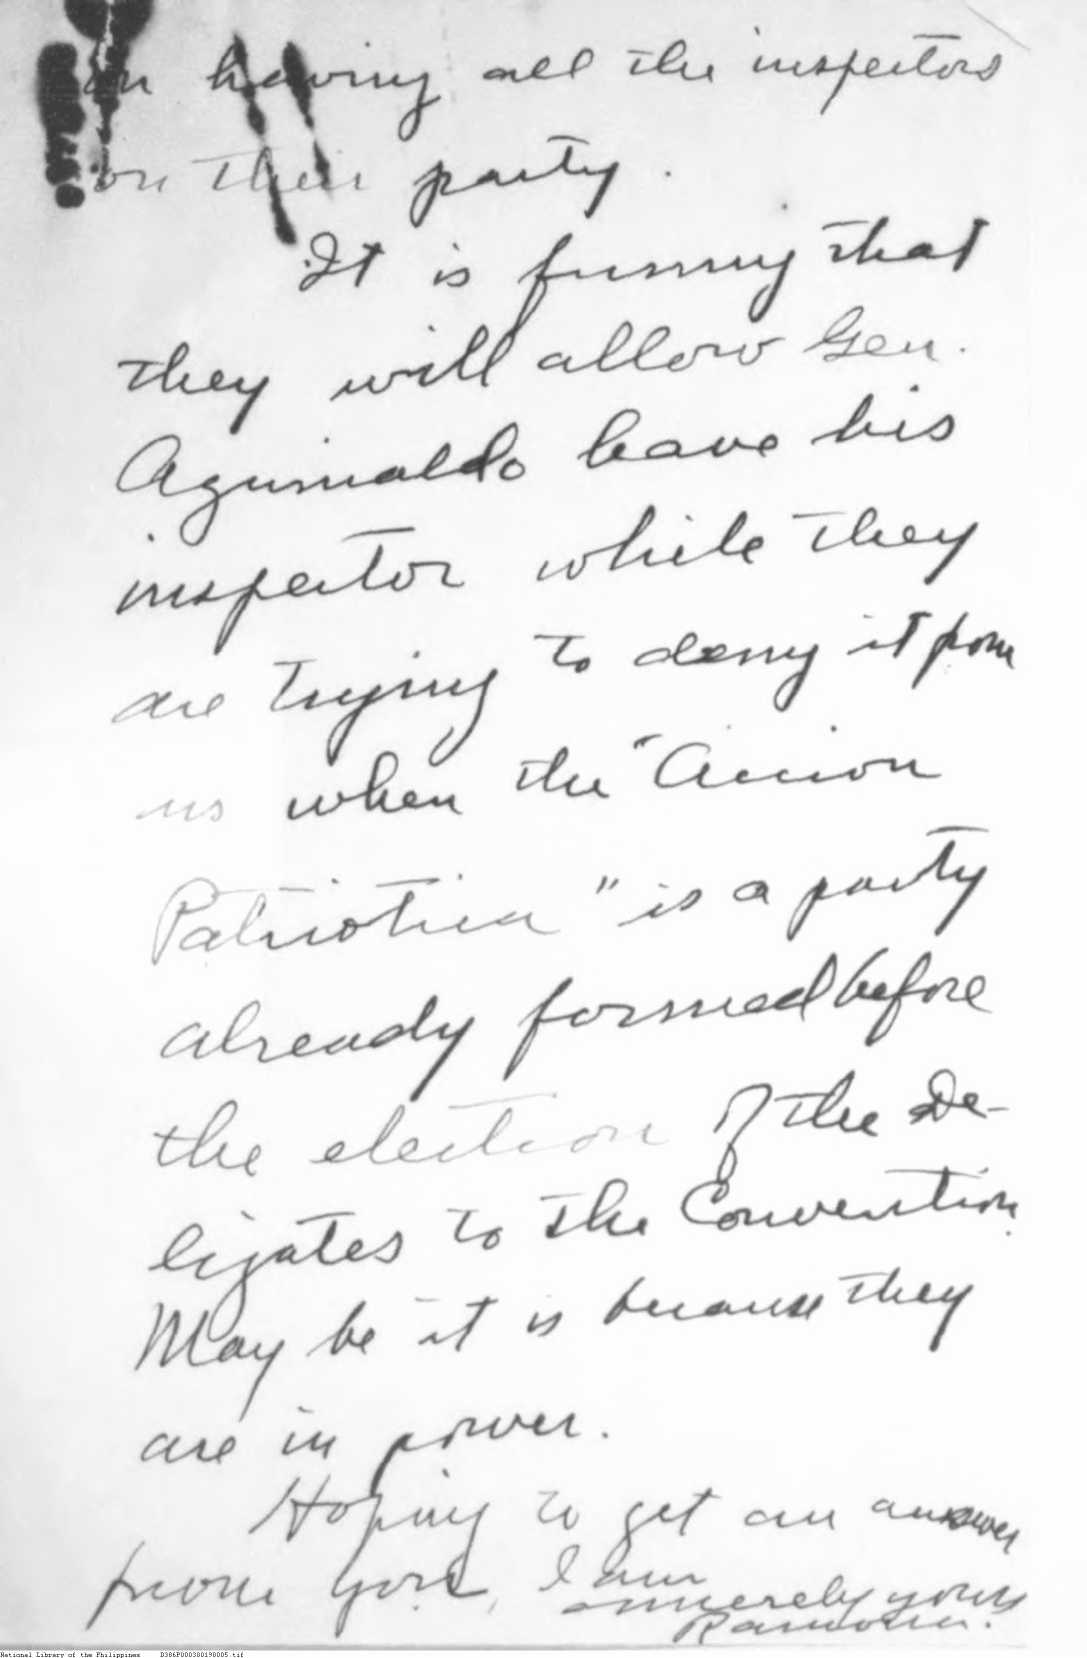 on having all the inspectors
on their party.
It is funny that
they will allow Gen.
Aguinaldo have his
inspector while they
are trying to deny it from
us when the "Accion
Patriotica" is a party
already formed before
the election of the De-
ligates to the Convention.
May be it is because they
are in power.
Hoping to get an answer
from you, I am
sincerely yours
Ramon.
National Library of the Philippines D386P000380198005.tif